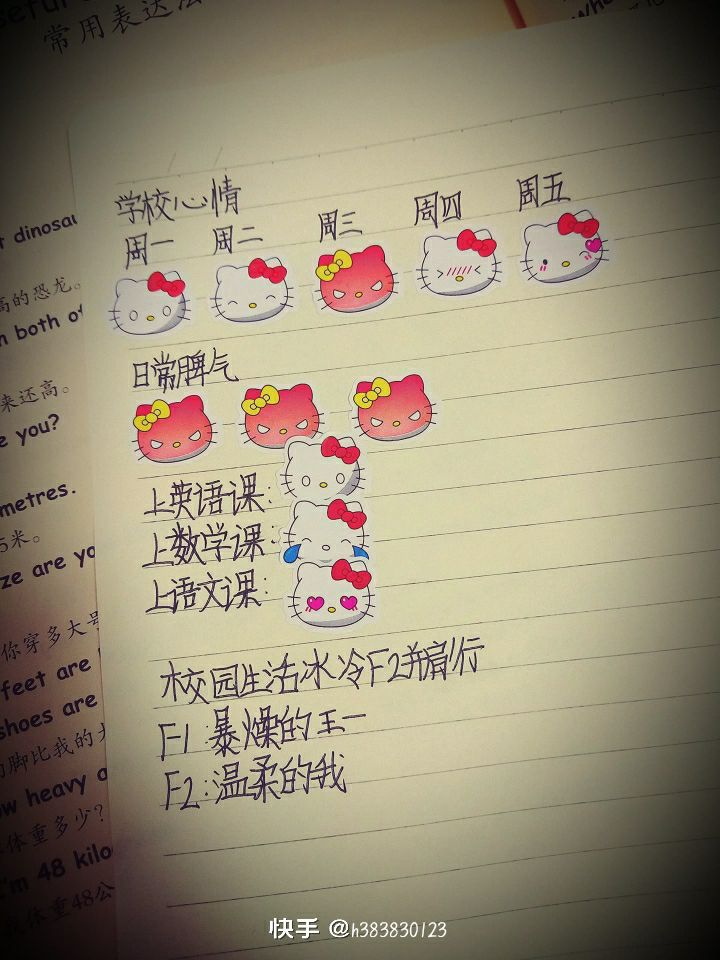 常用表达法
学校心情
周一 周二 周三 周四 周五
日常脾气
上英语课:
上数学课:
上语文课:
校园生活冰冷F2并肩行
F1:暴燥的王一
F2:温柔的我
dinosau
高的恐龙。
both of
来还高。
you?
metres.
5米。
are yo
你穿多大号
feet are
shoes are
脚比我的
heavy a
体重多少?
I'm 48 kilo
我体重48公
快手 @h383830123